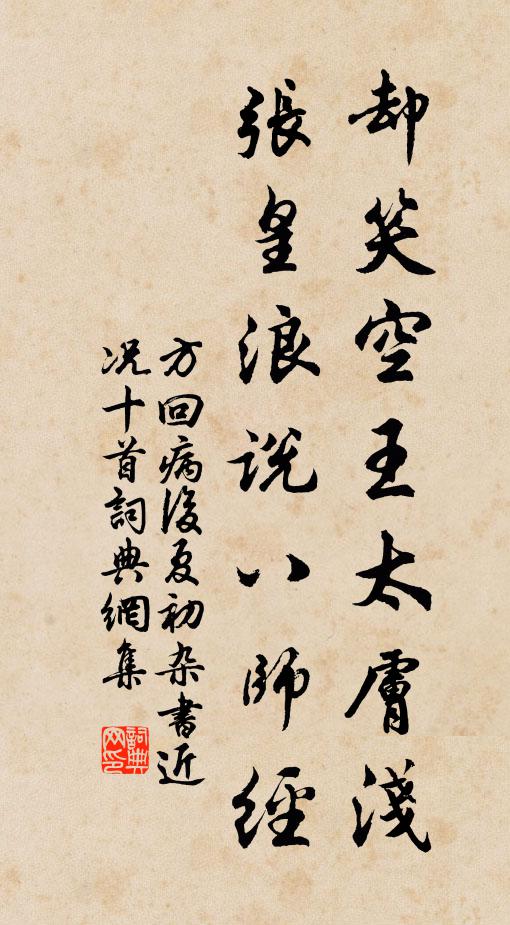 却笑空王太膚淺
張皇浪說八師經
方回病後夏初杂書近
况十首詞典網集
詞典
网印